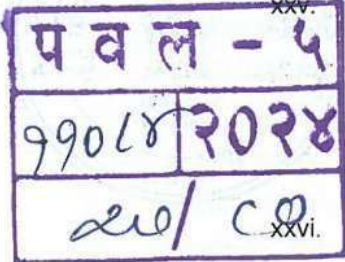 xxv.
प व ल - ५
११०८४ २०२४
xxvi.